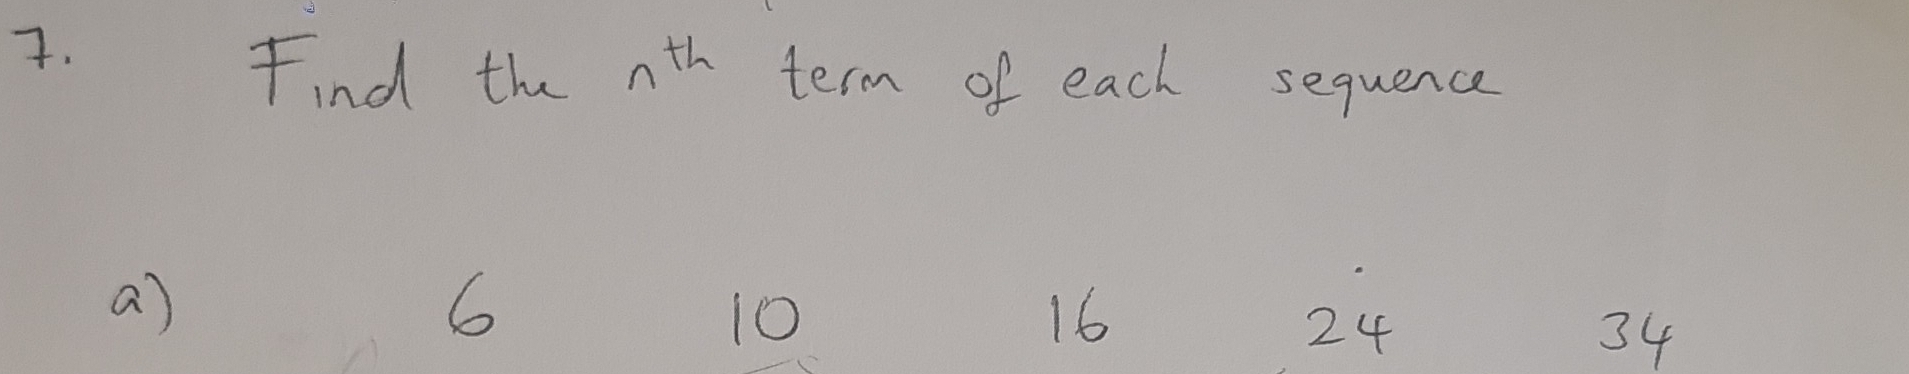 7. Find the nth term of each sequence
a) 6 10 16 24 34